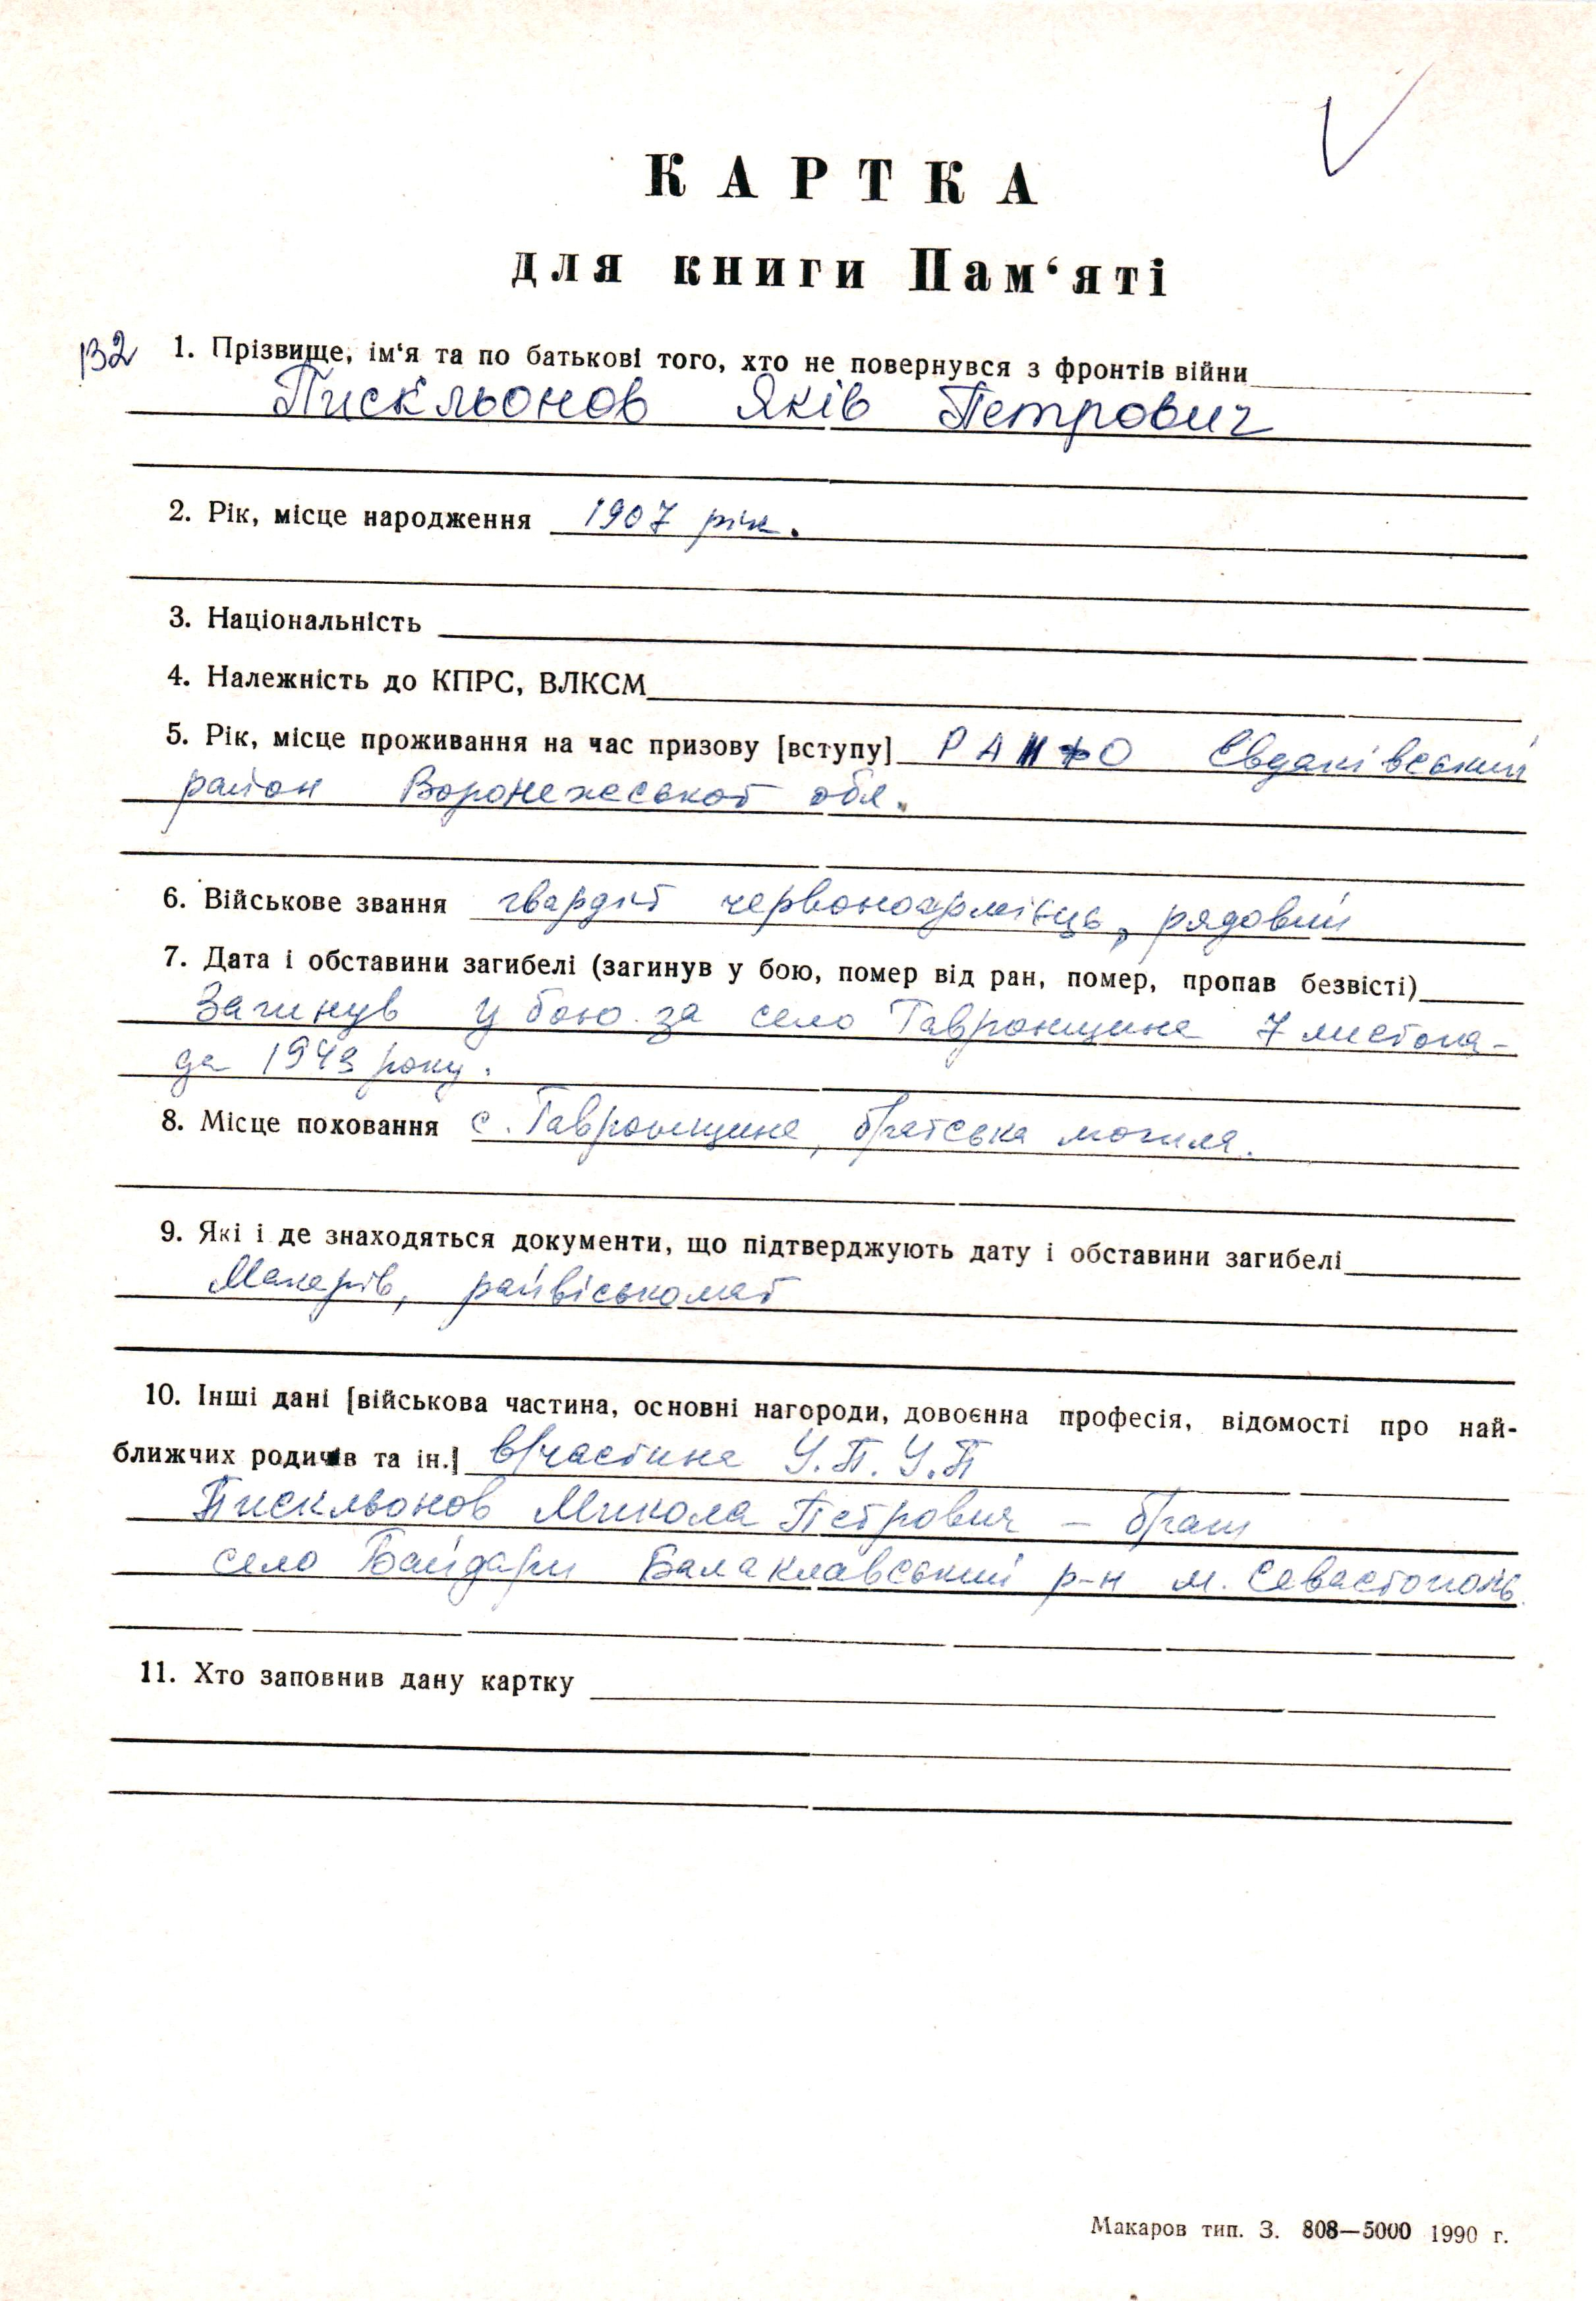 КАРТКА
для книги Пам‘яті
132
1. Прізвище, ім‘я та по батькові того, хто не повернувся з фронтів війни
Пискльонов Яків Петрович
2. Рік, місце народження 1907 рік.
3. Національність
4. Належність до КПРС, ВЛКСМ
5. Рік, місце проживання на час призову [вступу] Євдаківський
район Воронежської обл.
6. Військове звання гвардії червоноармієць, рядовий
7. Дата і обставини загибелі (загинув у бою, помер від ран, помер, пропав безвісті)
Загинув у бою за село Гавронщина 7 листопа-
да 1943 року.
8. Місце поховання с. Гавронщина, братська могила.
9. Які і де знаходяться документи, що підтверджують дату і обставини загибелі
Макарів, райвіськомат
10. Інші дані [військова частина, основні нагороди, довоєнна професія, відомості про най-
ближчих родичів та ін.] в/частина У.П.У.П
Пискльонов Микола Петрович – брат
село Байдари Балаклавський р-н м. Севастополь.
11. Хто заповнив дану картку
Макаров тип. З. 808—5000 1990 г.